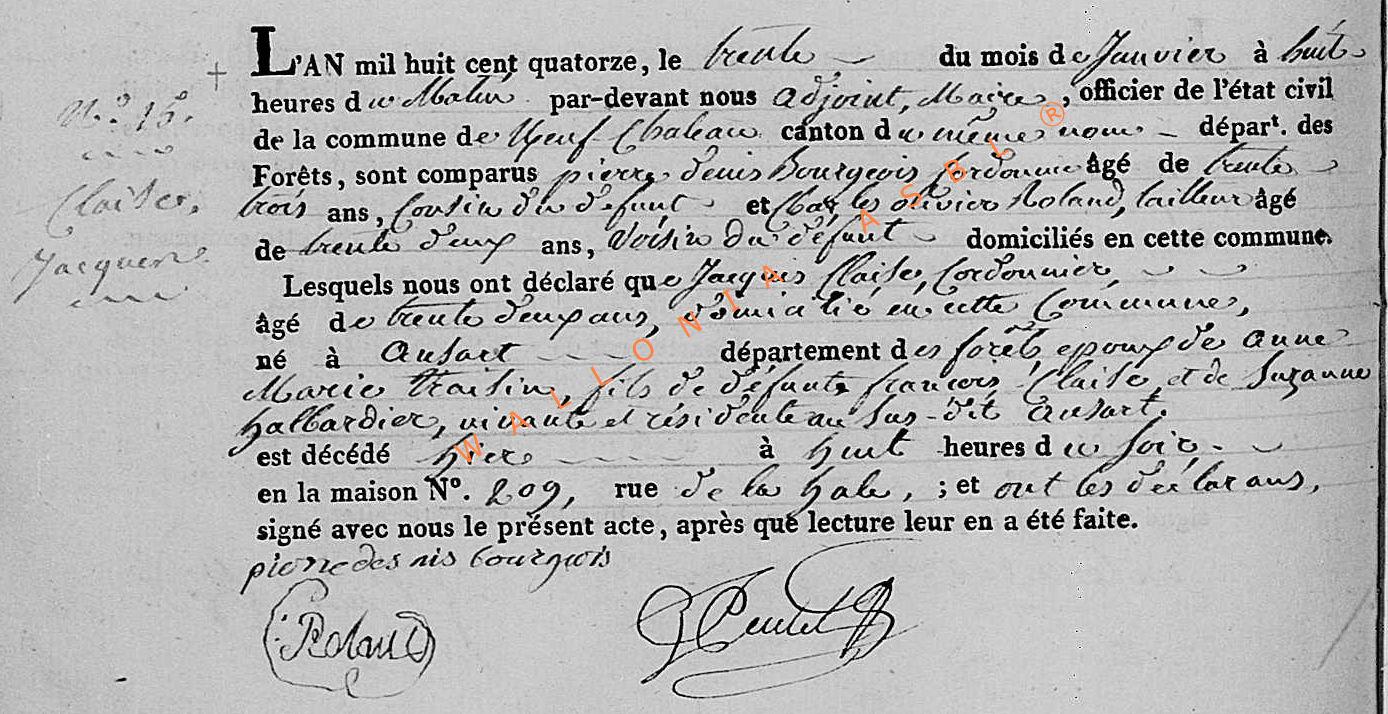 N.° 15.
Claise,
Jacques.
L'AN mil huit cent quatorze, le trente du mois de Janvier à huit
heures du Matin par-devant nous adjoint, Maire, officier de l'état civil
de la commune de Neuf Chateau canton du même nom départ. des
Forêts, sont comparus pierre denis Bourgeois Cordonnier âgé de trente
trois ans, Cousin du défunt et Charles olivier Roland, tailleur âgé
de trente deux ans, Voisin du défunt domiciliés en cette commune.
Lesquels nous ont déclaré que Jacques Claise, Cordonnier,
âgé de trente deux ans, domicilié en cette Commune,
né à ansart département des forêts epoux de anne
Marie, fils de défunt françois Claise, et de Suzanne
halbardier, vivante et résidente au Sus-dit ansart.
est décédé hier à huit heures du soir.
en la maison N°. 209, rue de la hale, ; et ont les déclarans,
signé avec nous le présent acte, après que lecture leur en a été faite.
pierre des nis bourgois
Roland
WALLONIA ASBL ®